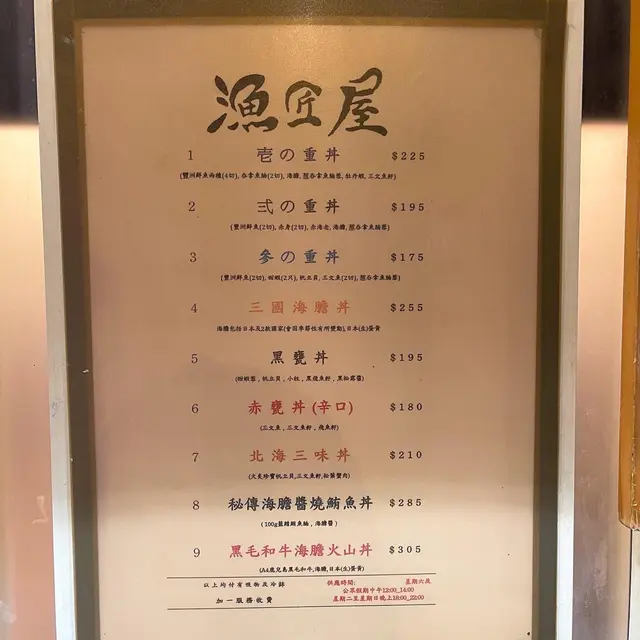 漁匠屋
1 壱の重丼 $225
(豐洲鮮魚兩種(4切), 吞拿魚腩(2切), 海膽, 葱吞拿魚腩蓉, 牡丹蝦, 三文魚籽)
2 弍の重丼 $195
(豐洲鮮魚(2切), 赤身(2切), 赤海老, 海膽, 葱吞拿魚腩蓉)
3 參の重丼 $175
(豐洲鮮魚(2切), 甜蝦(2只), 帆立貝, 三文魚(2切), 葱吞拿魚腩蓉)
4 三國海膽丼 $255
海膽包括日本及2款國家(會因季節性有所變動), 日本(生)蛋黃
5 黑甕丼 $195
(甜蝦蓉, 帆立貝, 小柱, 黑飛魚籽, 黑松露醬)
6 赤甕丼(辛口) $180
(三文魚, 三文魚籽, 飛魚籽)
7 北海三味丼 $210
(大炙珍寶帆立貝, 三文魚籽, 松葉蟹肉)
8 秘傳海膽醬燒鮪魚丼 $285
(100g藍鰭鮪魚腩, 海膽醬)
9 黑毛和牛海膽火山丼 $305
(A4鹿兒島黑毛和牛, 海膽, 日本(生)蛋黃)
以上均付有漬物及冷餸
加一服務收費
供應時間: 星期六及
公眾假期中午12:00_14:00
星期二至星期日晚上18:00_22:00